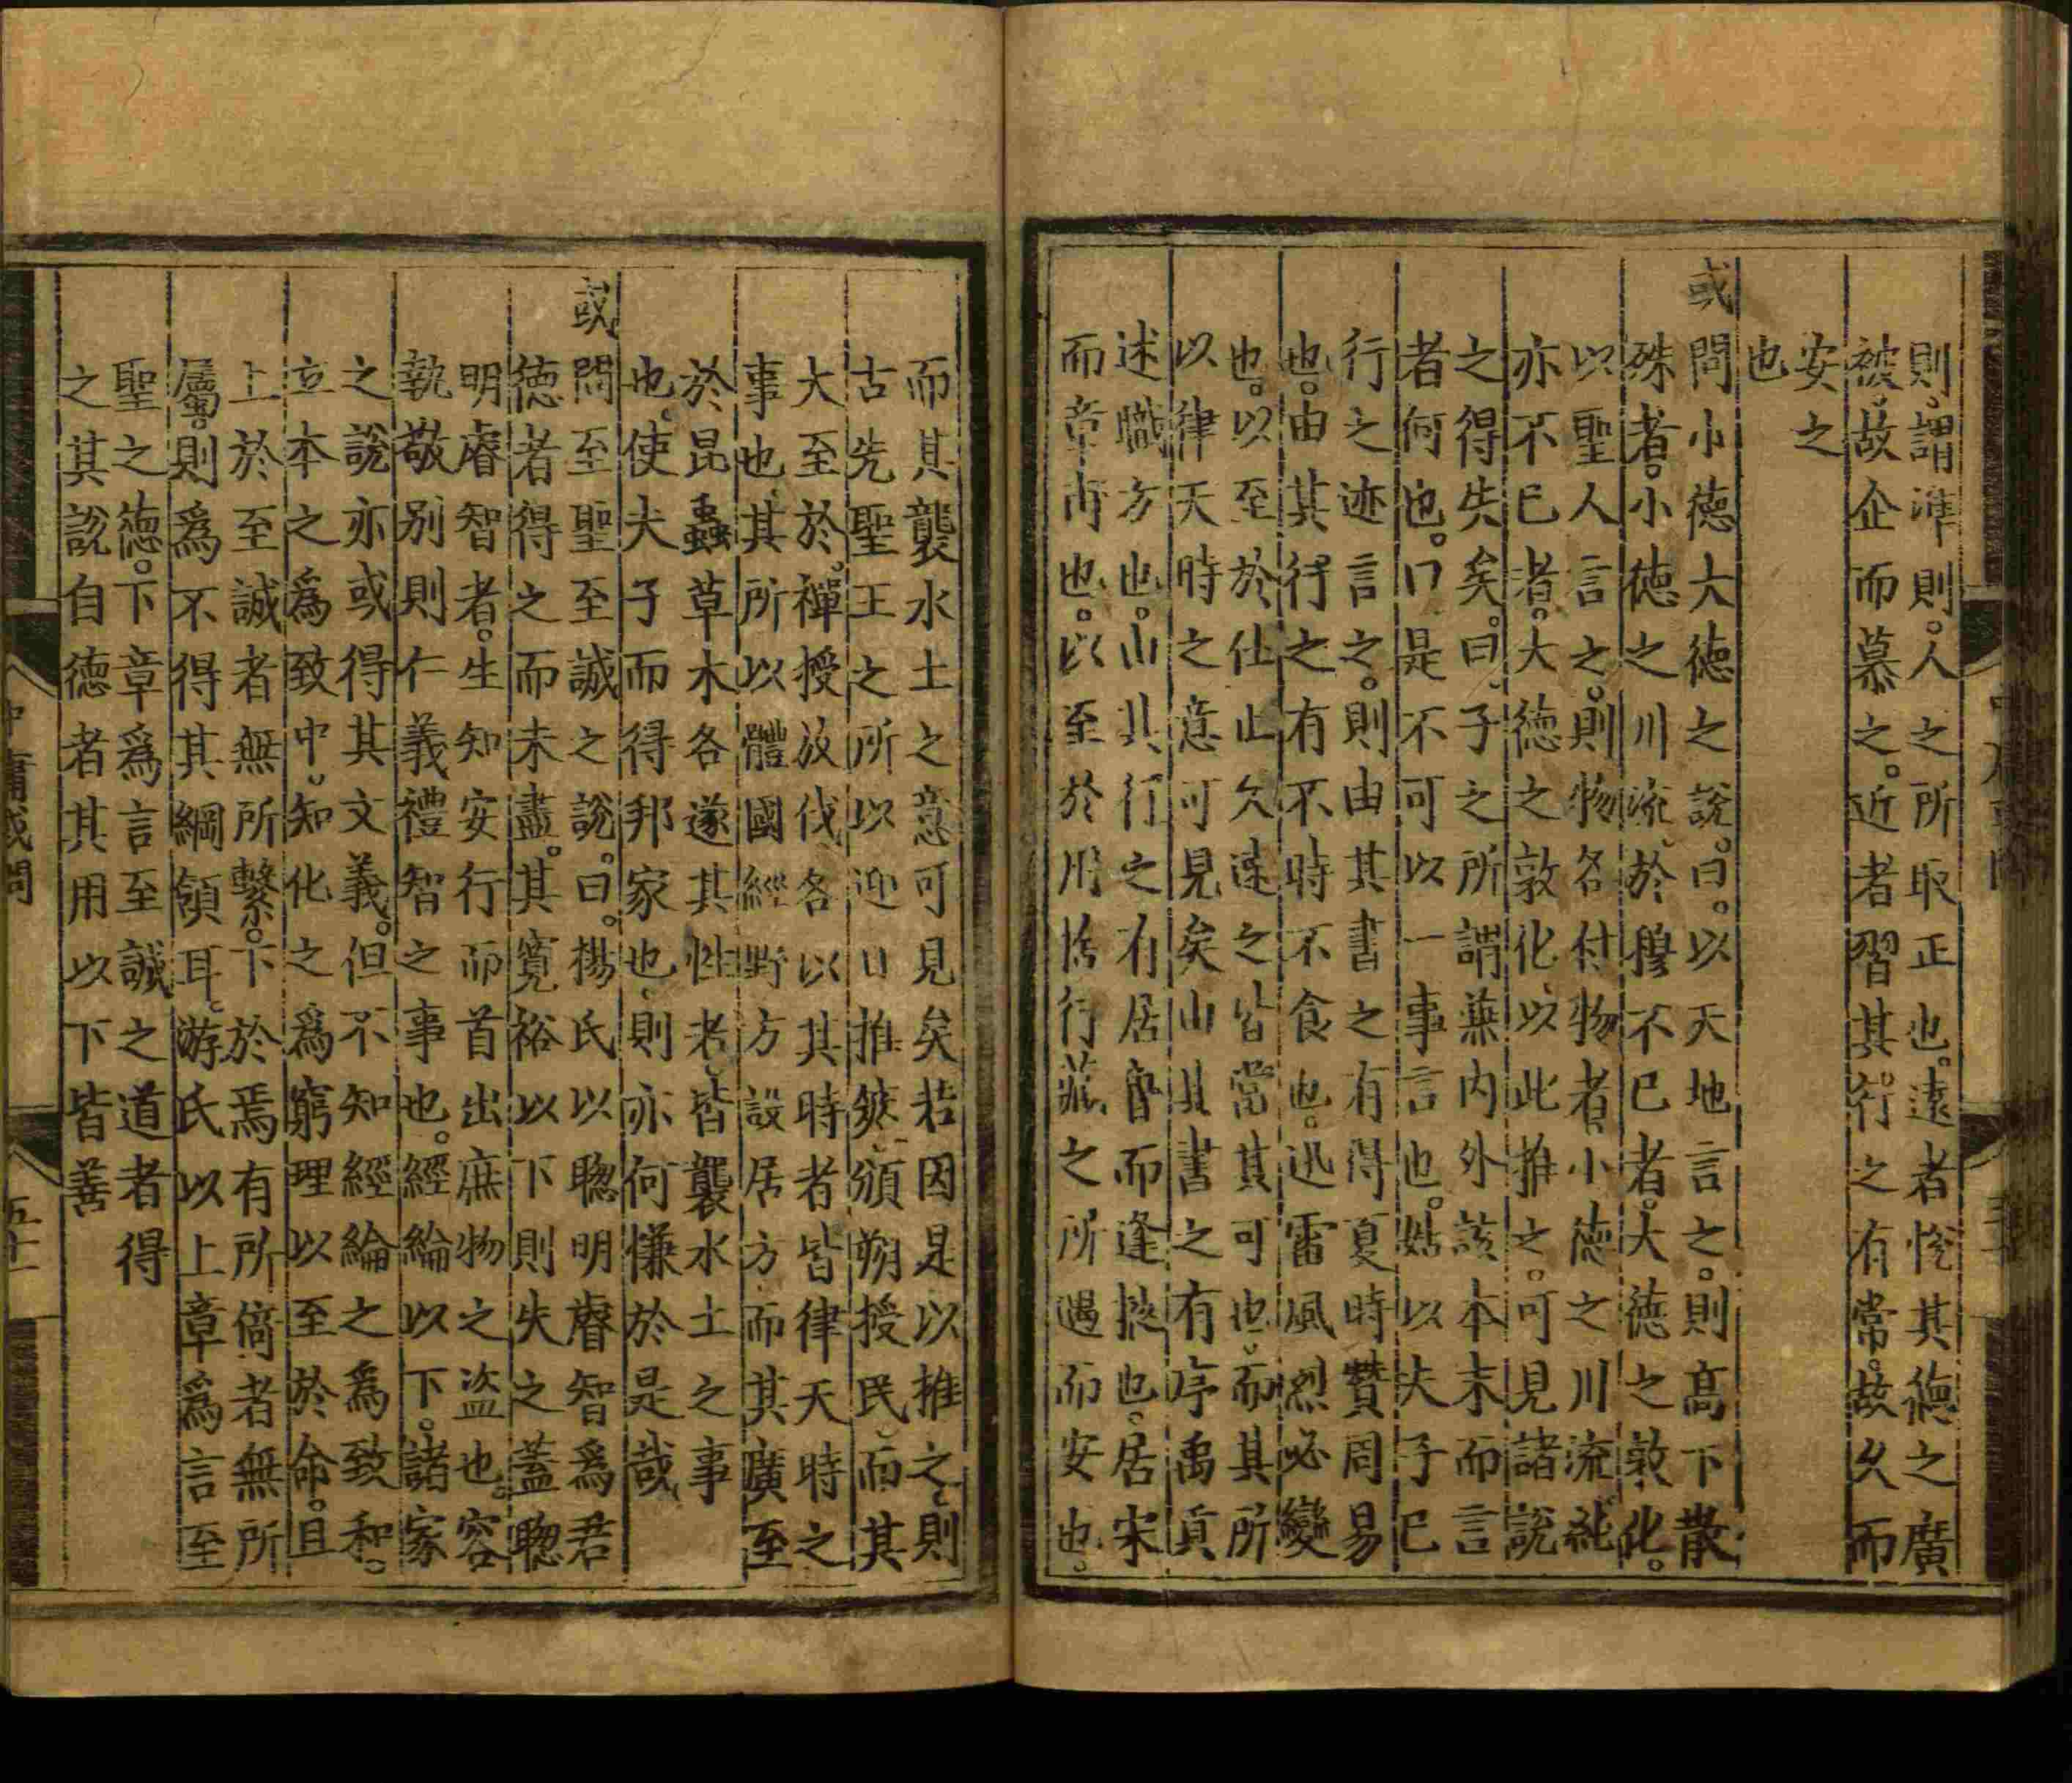 則謂準則。人之所取正也。遠者悅其德之廣
被。故企而慕之。近者習其行之有常。故久而
安之
也
或問小德大德之說。曰。以天地言之。則高下散
殊者。小德之川流。於穆不已者。大德之敦化。
以聖人言之。則物各付物者。小德之川流。純
亦不已者。大德之敦化。以此推之。可見諸說
之得失矣。曰。子之所謂兼內外該本末而言
者何也。曰是不可以一事言也。姑以夫子已
行之迹言之。則由其書之有得夏時贊周易
也。由其行之有不時不食也。迅雷風烈必變
也。以至於仕止久速之皆當其可也。而其所
以律天時之意可見矣由其書之有序禹貢
述職方也。由其行之有居魯而逢掖也。居宋
而章甫也。以至於用捨行藏之所遇而安也。
而其襲水土之意可見矣若因是以推之。則
古先聖王之所以迎日推筴。頒朔授民。而其
大至於。禪授放伐各以其時者皆律天時之
事也。其所以體國經野方設居方而其廣至
於昆蟲草木各遂其性者。皆襲水土之事
也。使夫子而得邦家也。則亦何慊於是哉
或問至聖至誠之說。曰。楊氏以聰明睿智爲君
德者得之而未盡。其寬裕以下則失之蓋聰
明睿智者。生知安行而首出庶物之盗也。容
執敬別則仁義禮智之事也。經綸以下。諸家
之說亦或得其文義。但不知經綸之爲致和。
立本之爲致中。知化之爲窮理以至於命。且
上於至誠者無所繫。下於焉有所倚者無所
屬。則爲不得其綱領耳。游氏以上章爲言至
聖之德。下章爲言至誠之道者得
之其說自德者其用以下皆善
中庸或問
五十一